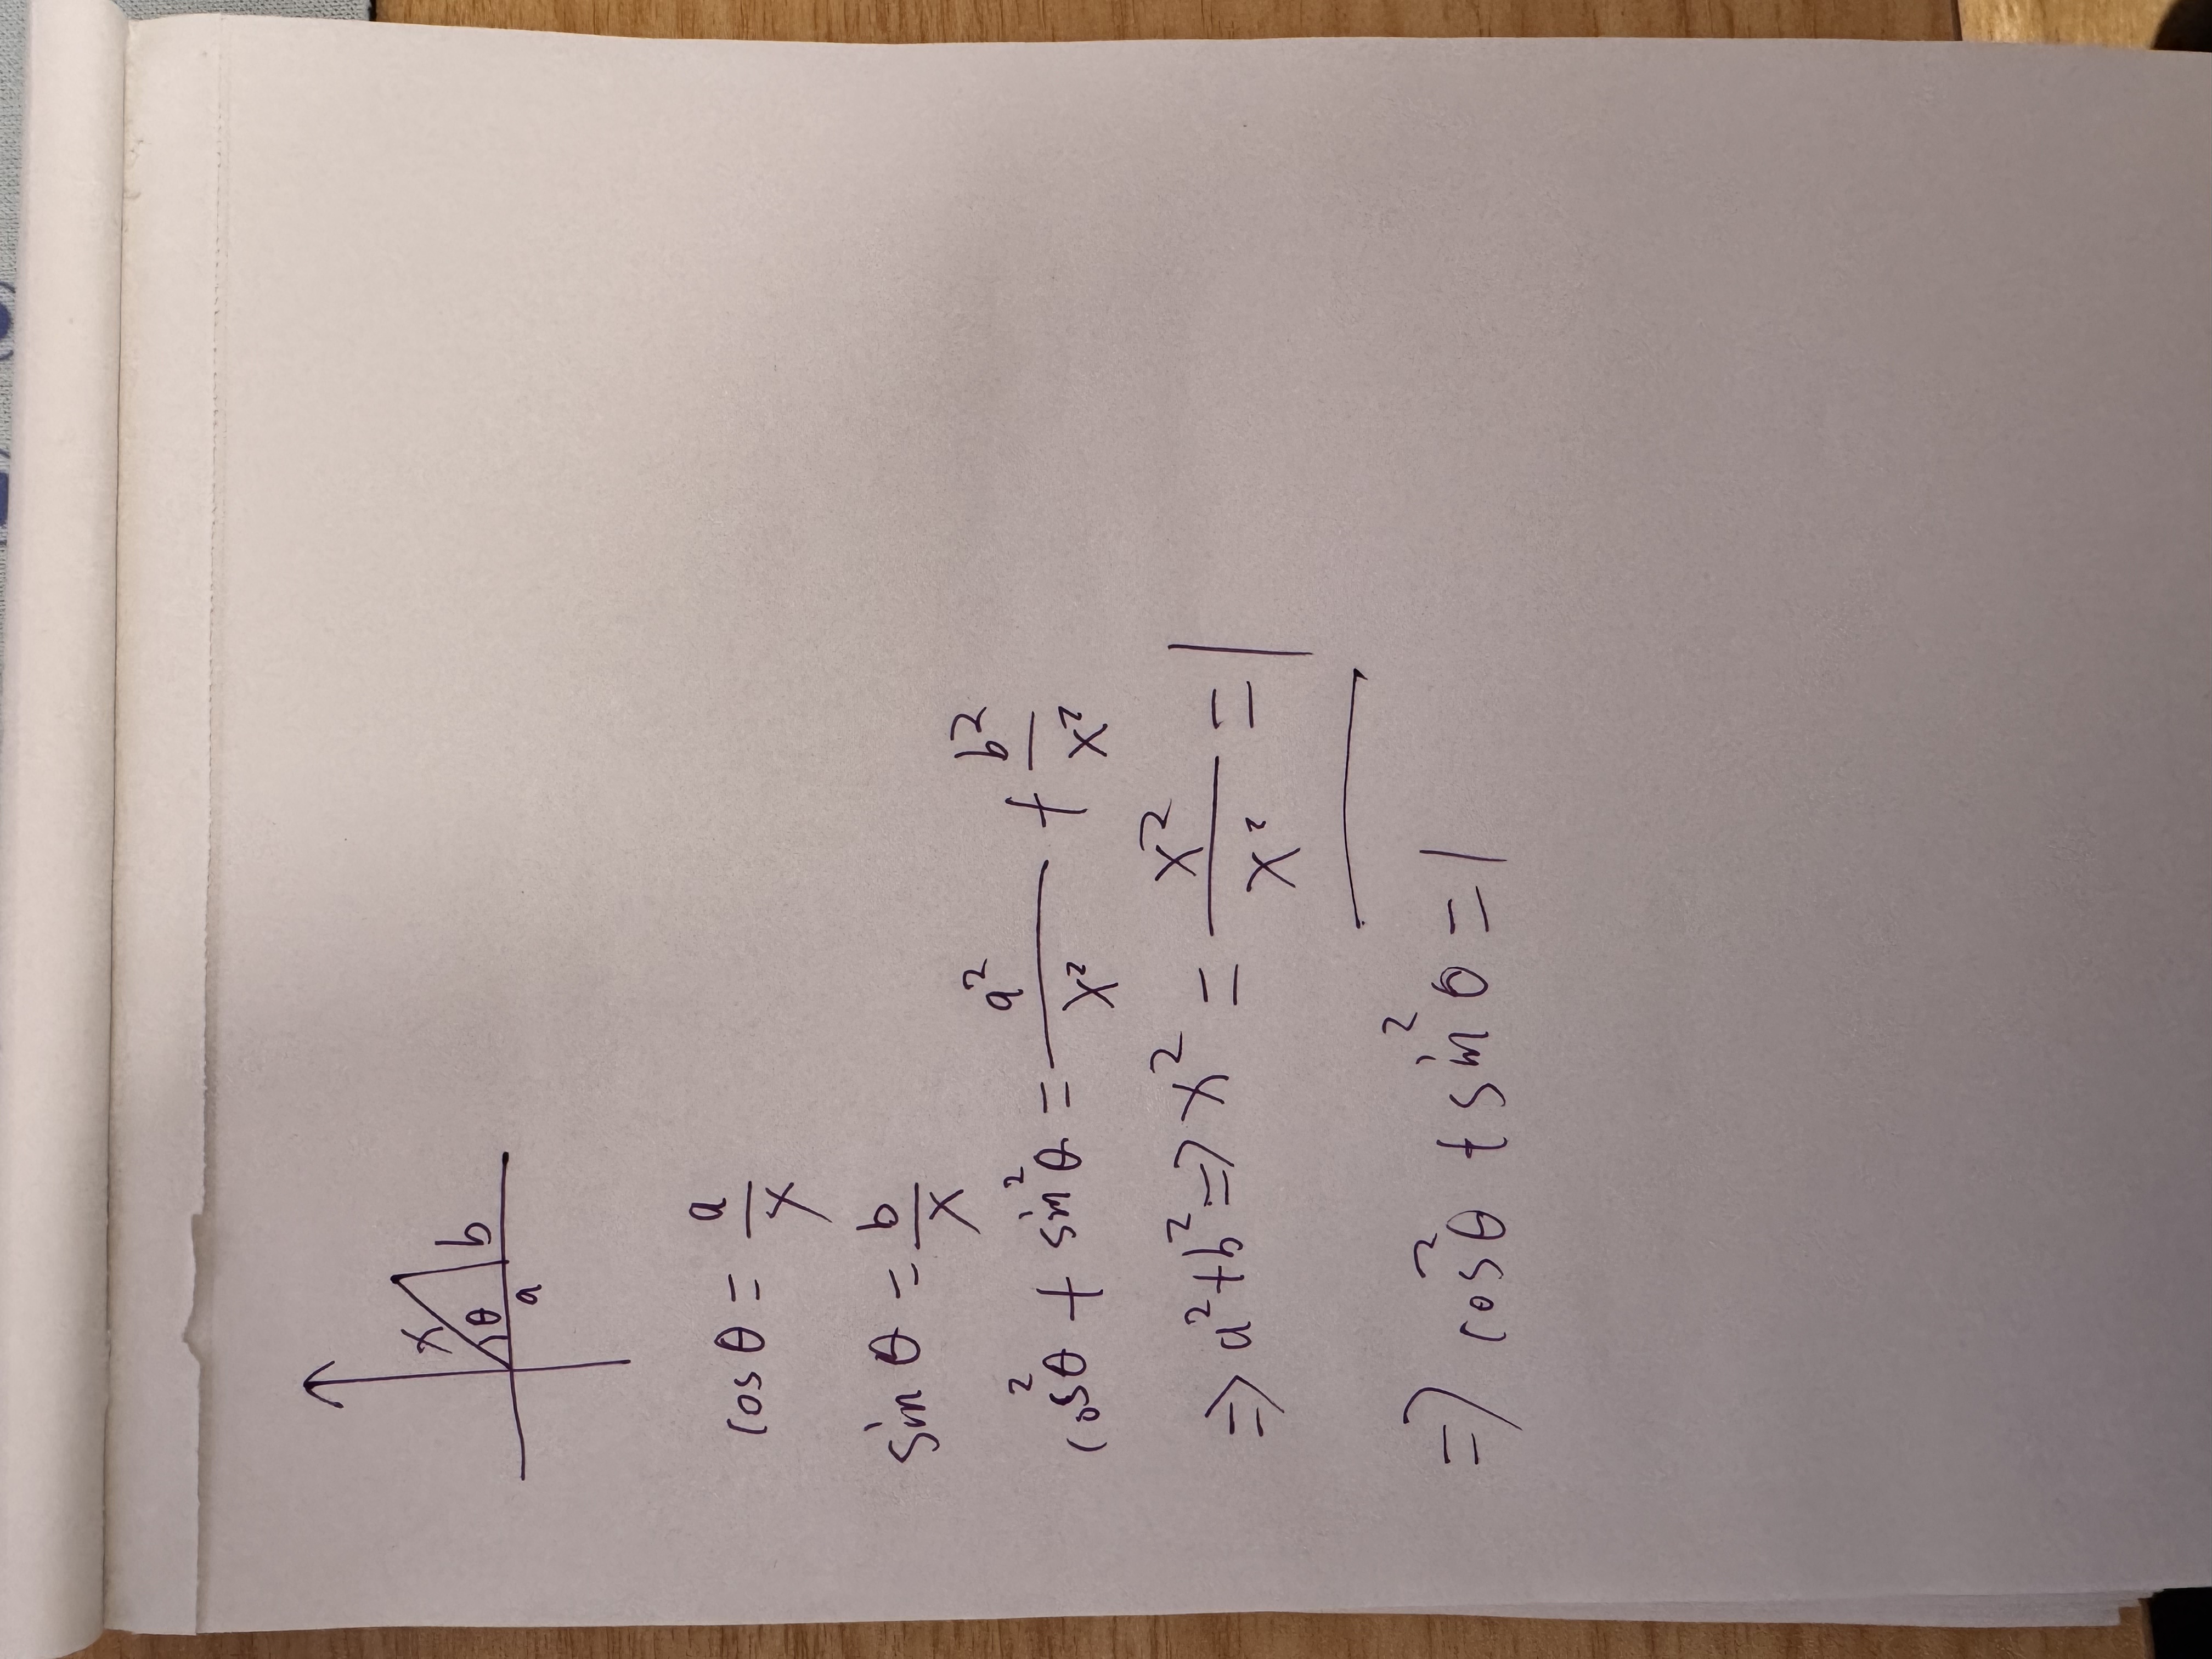 x
θ
b
a
cos θ = a/x
sin θ = b/x
cos²θ + sin²θ = a²/x² + b²/x²
=> a²+b² => x² = x²/x² = 1
=> cos²θ + sin²θ = 1